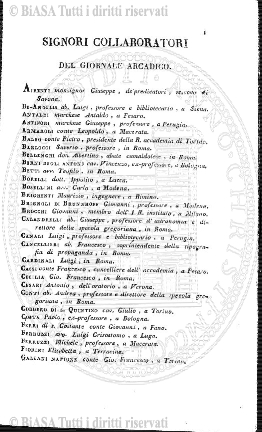 SIGNORI COLLABORATORI
DEL GIORNALE ARCADICO.
monsignor Giuseppe, de'predicatori, vescovo di
Savona.
ab. Luigi, professore e bibliotecario, a Siena.
ANTALDI marchese Antaldo, a Pesaro.
ANTINORI marchese Giuseppe, professore, a Perugia.
ARMAROLI conte Leopoldo, a Macerata.
BALBO conte Pietro, presidente della R. accademia di Torino.
BARLOCCI Saverio, professore, in Roma.
BELLENGHI don Albertino, abate camaldolese, in Roma.
cav. Vincenzo, ex-professore, a Bologna.
BETTI avv. Teofilo, in Roma.
BORELLI dott. Ippolito, a Lucca.
avv. Carlo, a Modena.
BRIGHENTI Maurizio, ingegnere, a Rimino.
BRIGNOLI DI BRUNNHOFF Giovanni, professore, a Modena.
BROCCHI Giovanni, membro dell' I R. instituto, a Milano.
CALANDRELLI ab. Giuseppe, professor d'astronomia e direttore della specola gregoriana, in Roma.
CANALI Luigi, professore e bibliotecario, a Perugia.
CANCELLIERI ab. Francesco, soprintendente della tipografia di propaganda, in Roma.
CARDINALI Luigi, in Roma.
CASSI conte Francesco, cancelliere dell'accademia, a Pesaro.
CECILIA Gio. Francesco, in Roma.
CESARI Antonio, dell'oratorio, a Verona.
CONTI ab. Andrea, professore e direttore della specola gregoriana, in Roma.
CORDERO di S. QUINTINO cav. Giulio, a Torino.
COSTA Paolo, ex-professore, a Bologna.
FERRI di S. Costante conte Giovanni, a Fano.
FERRUCCI avv. Luigi Crisostomo, a Lugo.
FERRUCCI Michele, professore, a Macerata.
FIORINI Elisabetta, a Terracina.
GALEANI NAPIONE conte Gio. Francesco, a Torino.